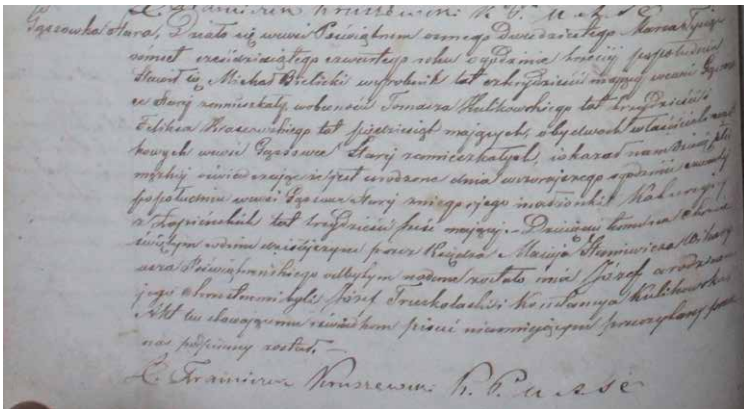 X. Franciszek Kruszewski K. P. U. A. S. C.
w
Gąsowka Stara, Działo się we wsi Poświątnem osmego Dwudziestego Marca Tysiąc
ośmset sześćdziesiątego czwartego roku o godzinie trzeciej po południu
Stawił się Michał Bielicki wyrobnik lat czterdzieści mający we wsi Gąsow
ce Starej zamieszkały, w obecności Tomasza Kulikowskiego lat trzydzieści i
Feliksa Kraszewskiego lat pięćdziesiąt mających, obydwoch właścicieli cząst
kowych we wsi Gąsowce Starej zamieszkałych, i okazał nam Dziecię płci
męzkiej oświadczając że jest urodzone dnia wczorajszego o godzinie czwartej
po południu we wsi Gąsowce Starej z niego i jego małżonki Katarzyny
z Łapińskich lat trzydzieści pięć mającej. Dziecięciu temu na Chrzcie
świętym w dniu dzisiejszym przez Księdza Macieja Staniewicza Wikary
usza Poświątnińskiego odbytym nadane zostało imię Józef a rodzicami
jego chrzestnemi byli Józef Truskolaski i Konstancya Kulikowska
Akt ten stawającemu i świadkom pisać nieumiejącym przeczytany przez
nas podpisany został. —
X. Franciszek Kruszewski K. P. U. A. S. C.